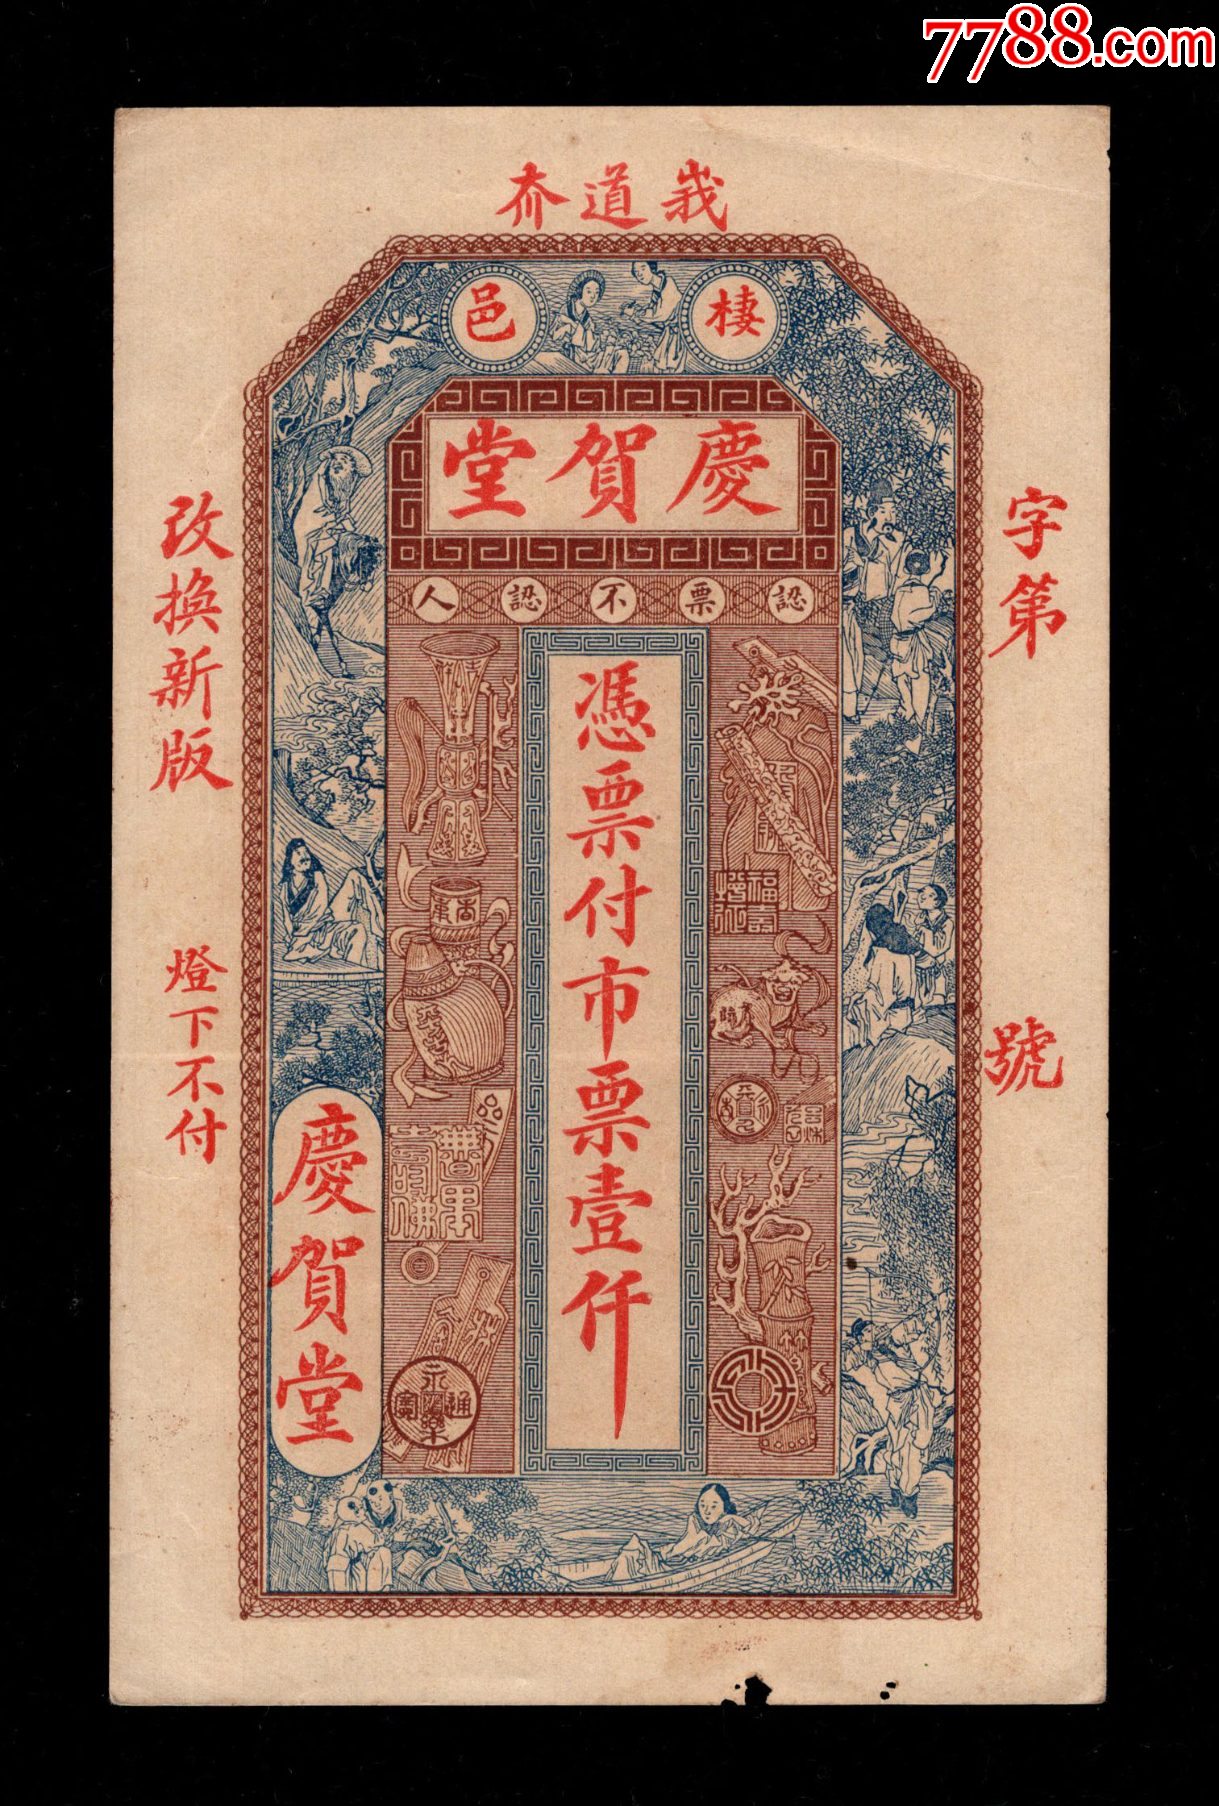 7788.com
峩道夼
棲邑
慶賀堂
認票不認人
憑票付市票壹仟
字第
號
改換新版
燈下不付
慶賀堂
永樂通寳